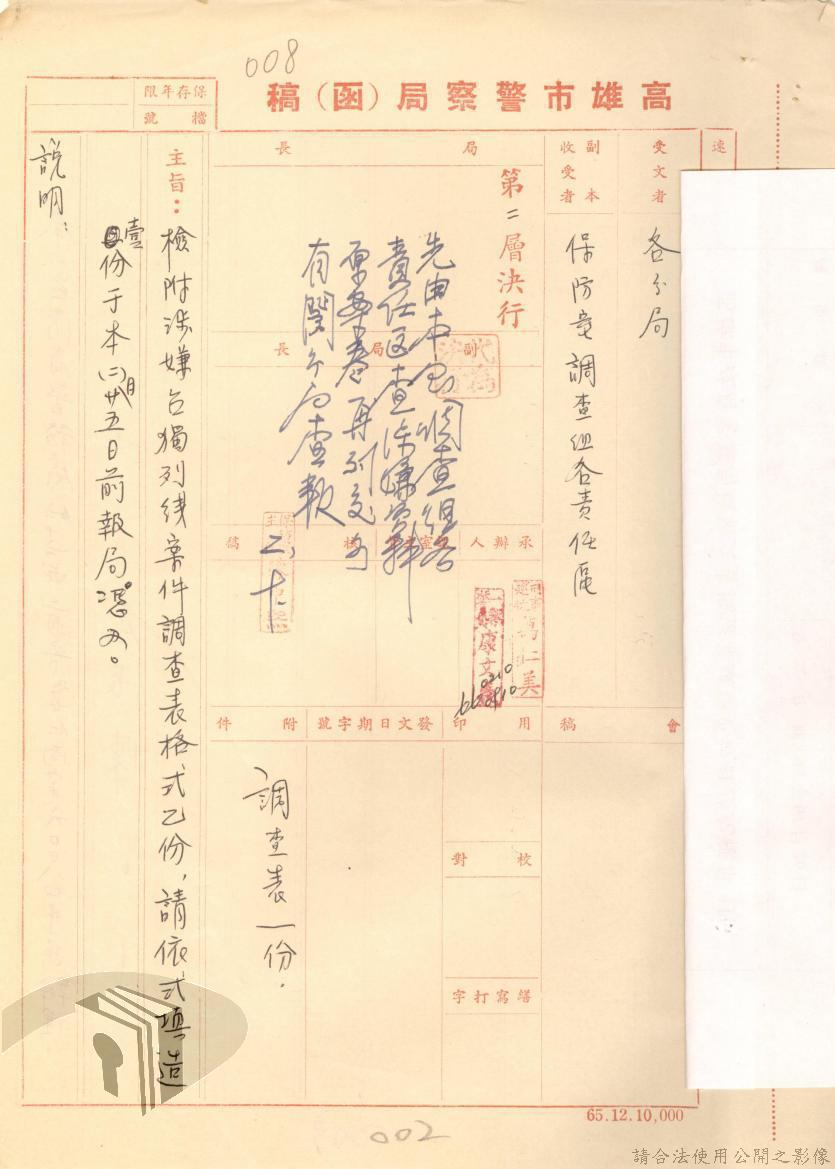 008
高雄市警察局（函）稿
保存年限
檔號
速
受文者
各分局
副本
收受者
保防室調查組各責任區
局長
第二層決行
副局長
先由本室調查組各
責任區查涉嫌資料
原卷再列交
有關分局查報
二、十
承辦人
核稿
會稿
用印
發文日期字號
附件
調查表一份．
校對
繕寫打字
主旨：檢附涉嫌台獨列線案件調查表格式乙份，請依式填造
壹份于本(二)月廿五日前報局憑办。
說明：
65.12.10,000
002
請合法使用公開之影像